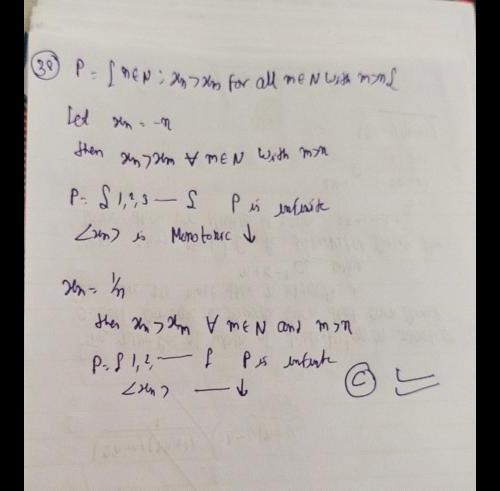 38 P = { n ∈ N ; xn > xm for all m ∈ N with m > n {
Let xn = -n
then xn > xm ∀ m ∈ N with m > n
P = { 1, 2, 3 — { P is infinite
<xn> is Monotonic ↓
xn = 1/n
then xn > xm ∀ m ∈ N and m > n
P = { 1, 2, — { P is infinite
<xn> — ↓
C